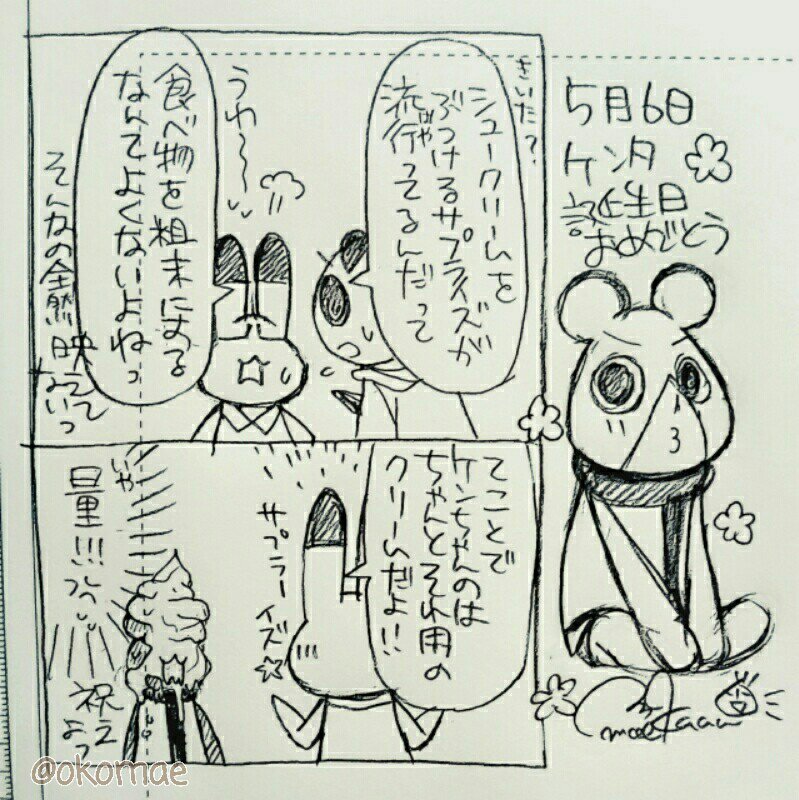 5月6日
ケンタ
誕生日
おめでとう
きいた？
シュークリームを
ぶつけるサプライズが
流行ってるんだって
はや
うわ〜〜
食べ物を粗末にする
なんてよくないよねっ
そんなの全然映えて
ないっ
てことで
ケンちゃんのは
ちゃんとそれ用の
クリームだよ!!
サプラーイズ☆
いや
量!!!
祝えよっ
@okomae